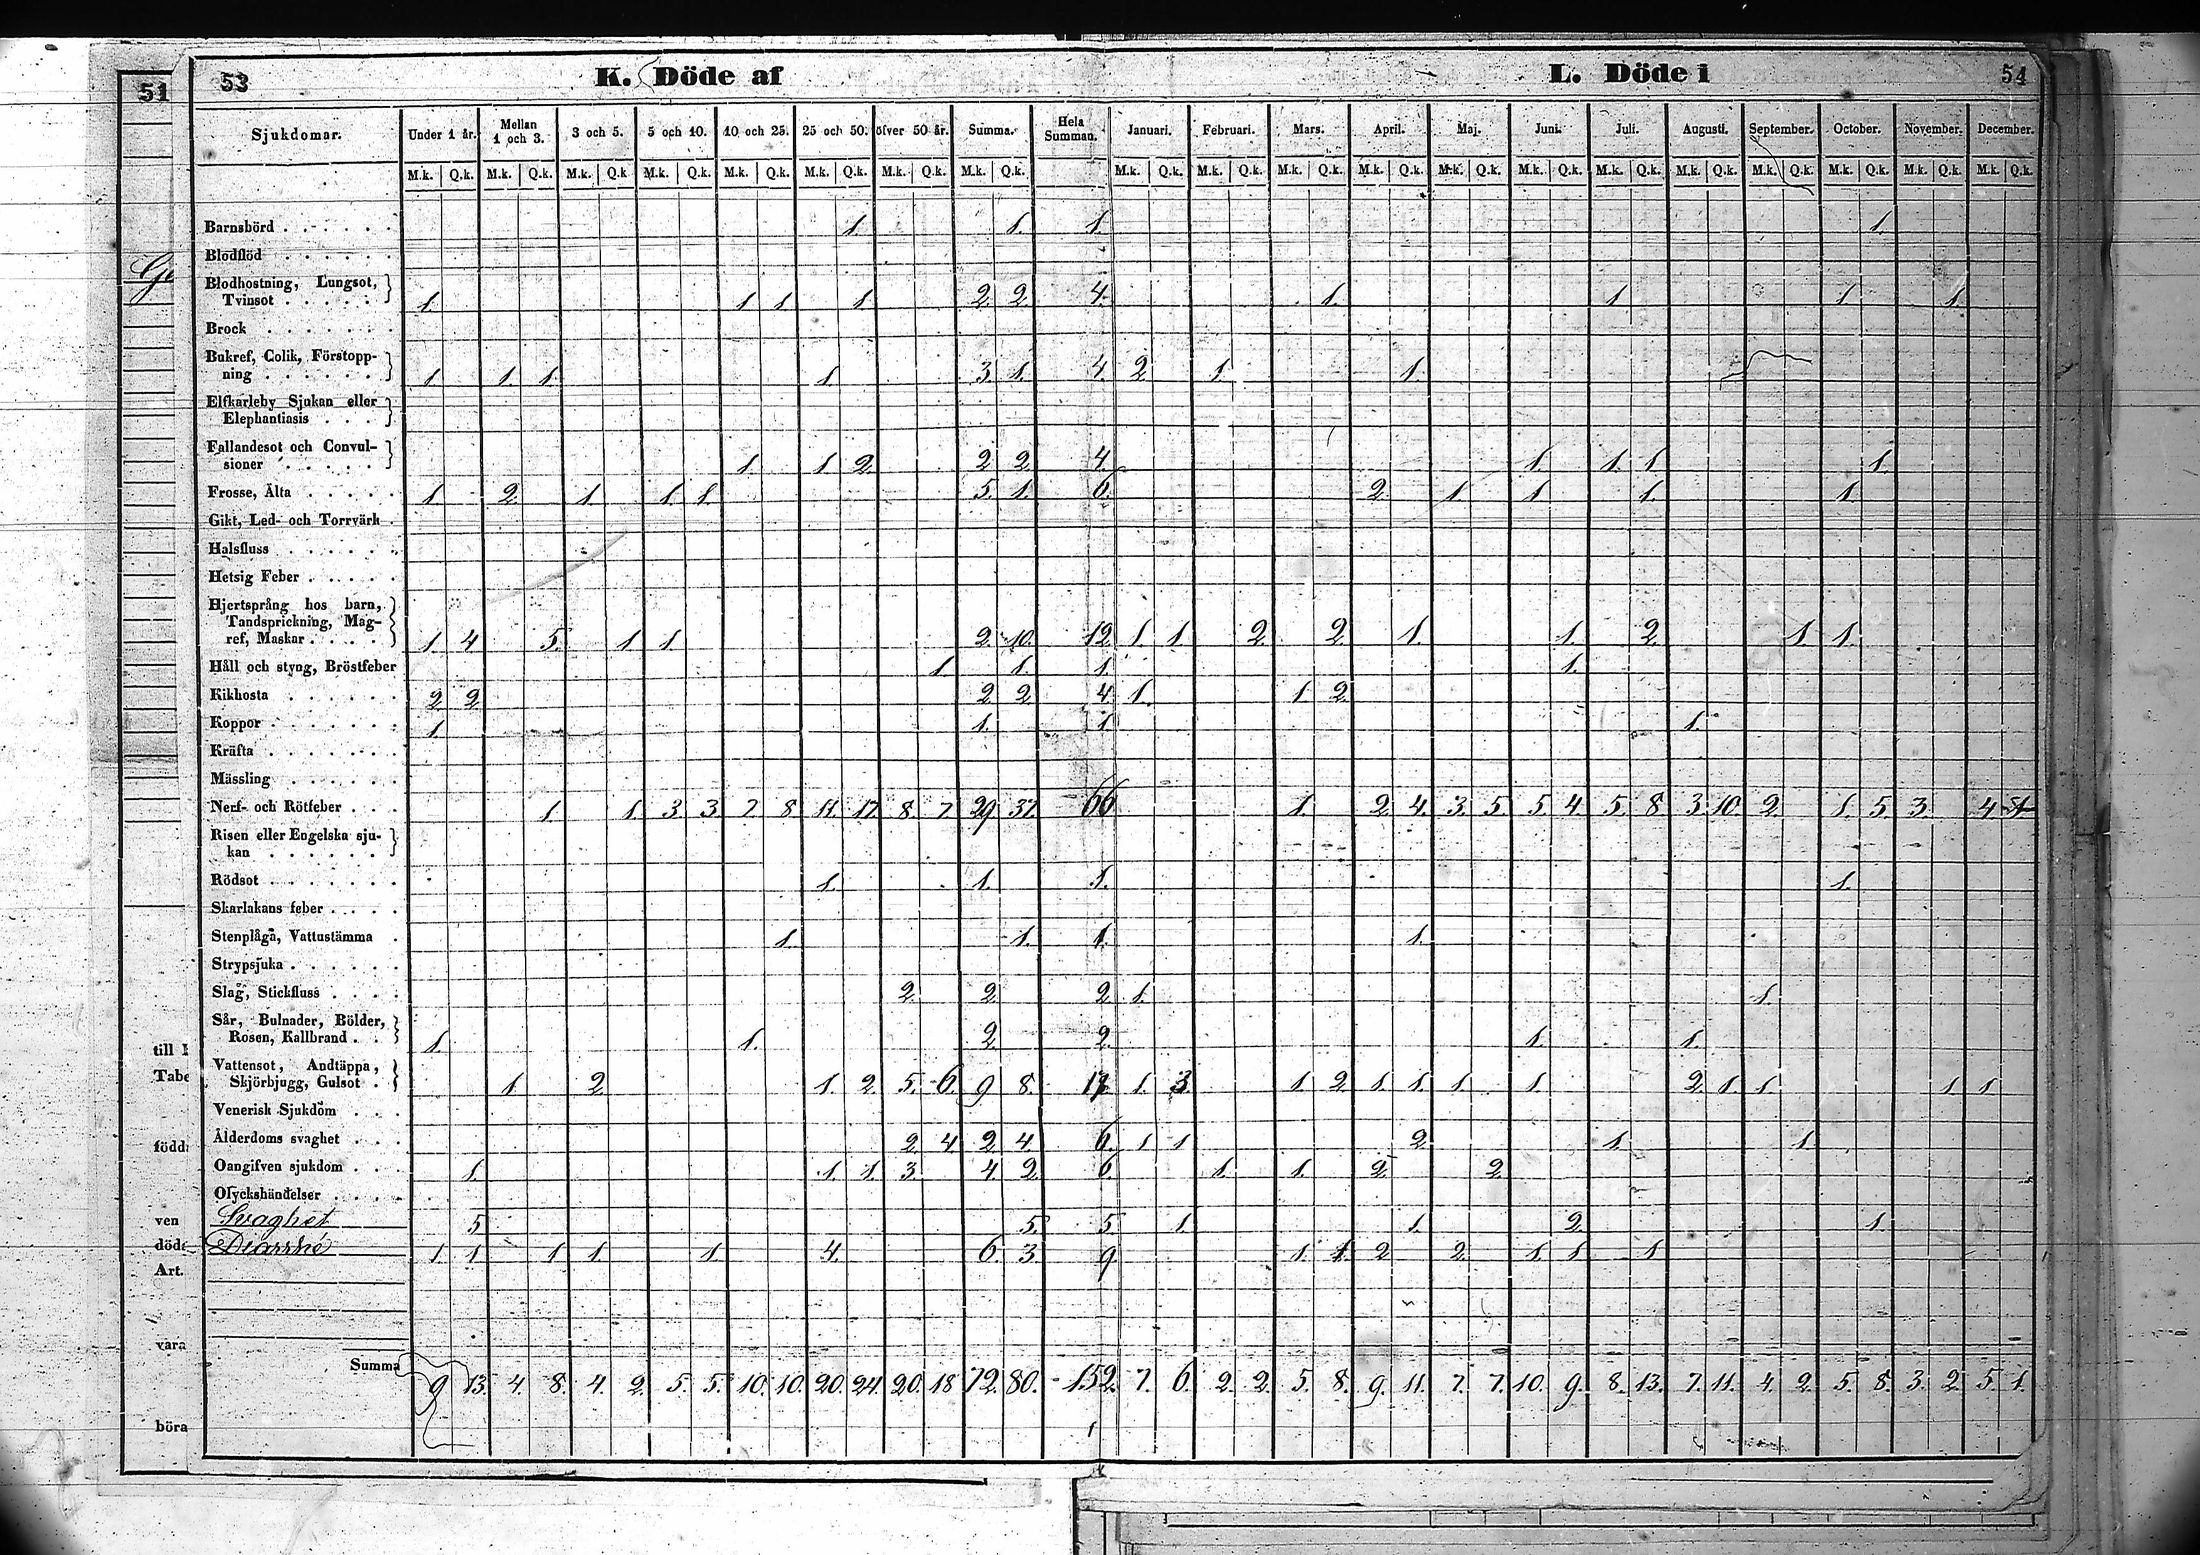 51 53 K. Döde af L. Döde i 54
Sjukdomar. Under 1 år. Mellan 1 och 3. 3 och 5. 5 och 10. 10 och 25. 25 och 50. öfver 50 år. Summa. Hela Summan. Januari. Februari. Mars. April. Maj. Juni. Juli. Augusti. September. October. November. December.
M.k. Q.k. M.k. Q.k. M.k. Q.k. M.k. Q.k. M.k. Q.k. M.k. Q.k. M.k. Q.k. M.k. Q.k. M.k. Q.k. M.k. Q.k. M.k. Q.k. M.k. Q.k. M.k. Q.k. M.k. Q.k. M.k. Q.k. M.k. Q.k. M.k. Q.k. M.k. Q.k. M.k. Q.k. M.k. Q.k.
Barnsbörd . . . . . . 1. 1. 1. 1.
Blodflöd . . . . . .
Blodhostning, Lungsot,
Tvinsot . . . . . 1. 1 1. 1. 2. 2. 4. 1. 1 1. 1.
Brock . . . . . . .
Bukref, Colik, Förstopp-
ning . . . . . . 1 1 1. 1. 3. 1. 4. 2. 1. 1.
Elfkarleby Sjukan eller
Elephantiasis . . .
Fallandesot och Convul-
sioner . . . . . 1. 1 2. 2. 2. 4. 1. 1. 1. 1.
Frosse, Älta . . . . . 1 2. 1. 1. 1. 5. 1. 6. 2. 1. 1. 1. 1.
Gikt, Led- och Torrvärk .
Halsfluss . . . . . .
Hetsig Feber . . . . .
Hjertsprång hos barn,
Tandsprickning, Mag-
ref, Maskar . . . . 1. 4. 5. 1 1. 2. 10. 12. 1. 1. 2. 2. 1. 1. 2. 1. 1.
Håll och styng, Bröstfeber 1 1. 1. 1.
Kikhosta . . . . . . 2 2. 2. 2. 4. 1. 1. 2.
Koppor . . . . . . 1. 1. 1. 1.
Kräfta . . . . . .
Mässling . . . . . .
Nerf- och Rötfeber . . . 1. 1. 3. 3. 7. 8. 11. 17. 8. 7. 29. 37. 66 1. 2. 4. 3. 5. 5. 4. 5. 8. 3. 10. 2. 1. 5. 3. 4
Risen eller Engelska sju-
kan . . . . . .
Rödsot . . . . . . . 1. 1. 1. 1.
Skarlakans feber . . . .
Stenplåga, Vattustämma . 1. 1. 1. 1.
Strypsjuka . . . . . .
Slag, Stickfluss . . . . 2. 2. 2. 1. 1.
Sår, Bulnader, Bölder,
Rosen, Kallbrand . . 1. 1. 2. 2. 1. 1.
Vattensot, Andtäppa,
Skjörbjugg, Gulsot . 1. 2. 1. 2. 5. 6. 9 8. 17. 1. 3. 1. 2. 1. 1. 1. 1. 2. 1. 1. 1. 1.
Venerisk Sjukdom . . .
Ålderdoms svaghet . . . 2. 4. 2. 4. 6. 1 1 2. 1. 1.
Oangifven sjukdom . . . 1. 1. 1. 3. 4. 2. 6. 1. 1. 2. 2.
Olyckshändelser . . . .
Svaghet 5. 5. 5. 1. 1. 2. 1.
Diarrhé 1. 1. 1 1. 1. 4. 6. 3. 9 1. 1. 2. 2. 1. 1. 1
Summa 9. 13. 4. 8. 4. 2. 5. 5. 10. 10. 20. 24. 20. 18 72. 80. 152. 7. 6. 2. 2. 5. 8. 9. 11. 7. 7. 10. 9. 8. 13. 7. 11. 4. 2. 5. 8. 3. 2. 5. 1.
till
Tabe
ven
Art.
vara
böra